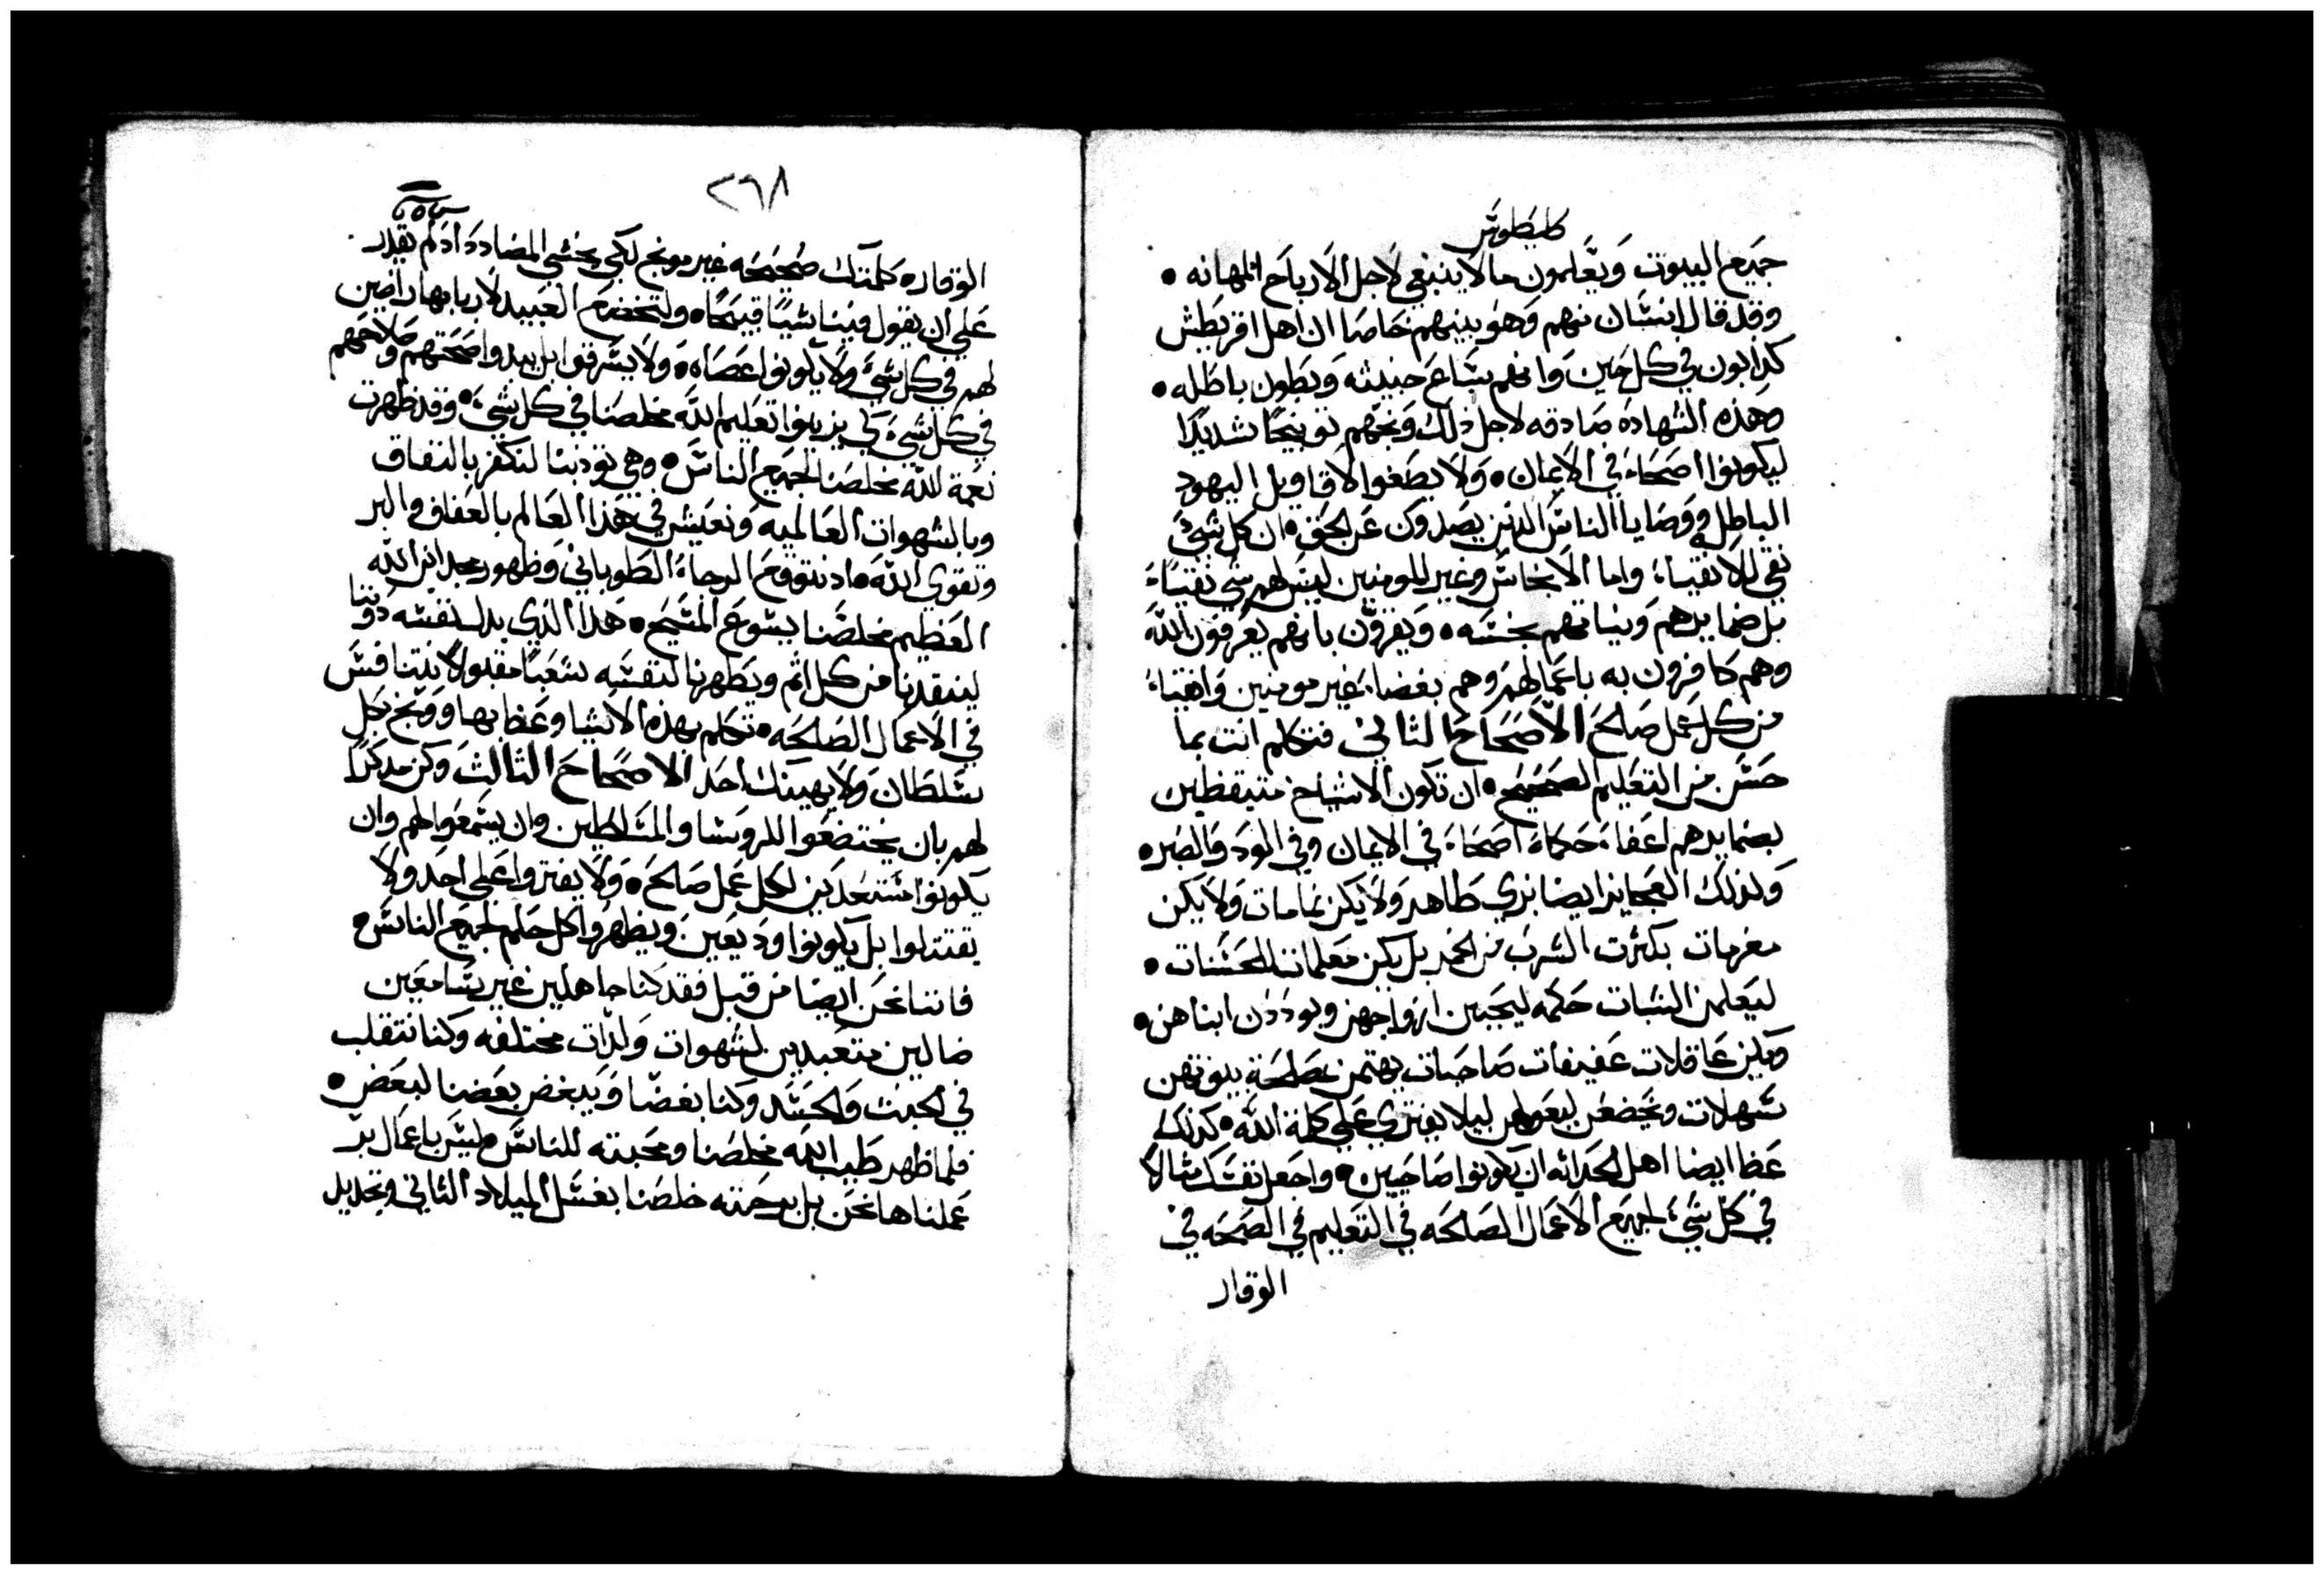 كليطوس
جميع البيوت ويعلمون ما لا ينبغي لاجل الارباح المهانه •
وقد قال انسان منهم وهو بينهم خاصا ان اهل اقريطش
كدابون في كل حين وانهم سباع خبيثه وبطون باطله •
وهذه الشهاده صادقه لاجل ذلك وبخهم توبيخا شديدا
ليكونوا اصحاء في الايمان • ولا يصغوا لاقاويل اليهود
الباطل ووصايا الناس الذين يصدون عن الحق • ان كل شي
نقي للانقيا، واما الانجاس وغير المومنين ليس لهم شي نقيا
بل ضمايرهم ونياتهم نجسه • ويقرون بانهم يعرفون الله
وهم كافرون به باعمالهم وهم بغضا، غير مومنين واقنيا،
من كل عمل صالح الاصحاح الثاني فتكلم انت بما
حسن من التعليم الصحيح • ان تكون الاشياخ متيقظين
بضمايرهم اعفا، حكماء اصحاء في الايمان وفي الود والصبر •
ولذلك العجايز ايضا بزي طاهر ولا يكن نمامات ولا يكن
مغرمات بكثرت الشرب من الخمر بل يكن معلمات للحسنات •
ليعلمن الشبات حكمه ليحببن ازواجهن ويوددن ابناهن •
ويكن عاقلات عفيفات صاحبات يهتمن بصلحة بيوتهن
سهلات وتخضعن لبعولهن ليلا يفتري على كلمة الله • كذلك
عظ ايضا اهل الحداثه ان يكونوا صاحيين • واجعل نفسك مثالا
في كل شي، لجميع الاعمال الصالحه في التعليم في الصحه في
الوقار
٢٦٨
الوقاره كلمتك صحيحه غير موبخ لكي يخشي المضادد اذ لم يقدر
على ان يقول فينا شيًا قبيحًا • ولتخضع العبيد لاربابها راضين
لهم في كل شي ولا يكونوا عصاه • ولا يسرقوا بل يبدوا صحتهم وصلاحهم
في كل شي لكي يزينوا تعليم الله مخلصنا في كل شي، • وقد ظهرت
نعمة الله مخلصنا لجميع الناس • وهي تودبنا لنكفر بالنفاق
وبالشهوات العالميه ونعيش في هذا العالم بالعفاف والبر
وتقوي الله • اد نتوقع الرجاء الطوباني وظهور مجد ابن الله
العظيم مخلصنا يسوع المسيح • هذا الذي بدل نفسه دوننا
لينقدنا من كل اثم ويطهرنا لنفسه شعبًا مقبولا يتنافس
في الاعمال الصالحه • تكلم بهذه الاشيا وعظ بها ووبخ بكل
سلطان ولا يهينك احد الاصحاح الثالث وكن مدكرًا
لهم بان يختضعوا للروسا والمسلطين وان يسمعوا لهم وان
يكونوا مستعدين لكل عمل صالح • ولا يفتروا على احد ولا
يقتتلوا بل يكونوا وديعين ويظهروا كل حلم لجميع الناس •
فاننا نحن ايضا من قبل فقد كنا جاهلين غير سامعين
ضالين متعبدين لشهوات ولذات مختلفه وكنا نتقلب
في الخبث والحسد وكنا بغضا ويبغض بعضنا لبعض •
فلما ظهر طيب الله مخلصنا ومحبته للناس • ليس باعمال بر
عملناها نحن بل برحمته خلصنا بغسل الميلاد الثاني وتجديد